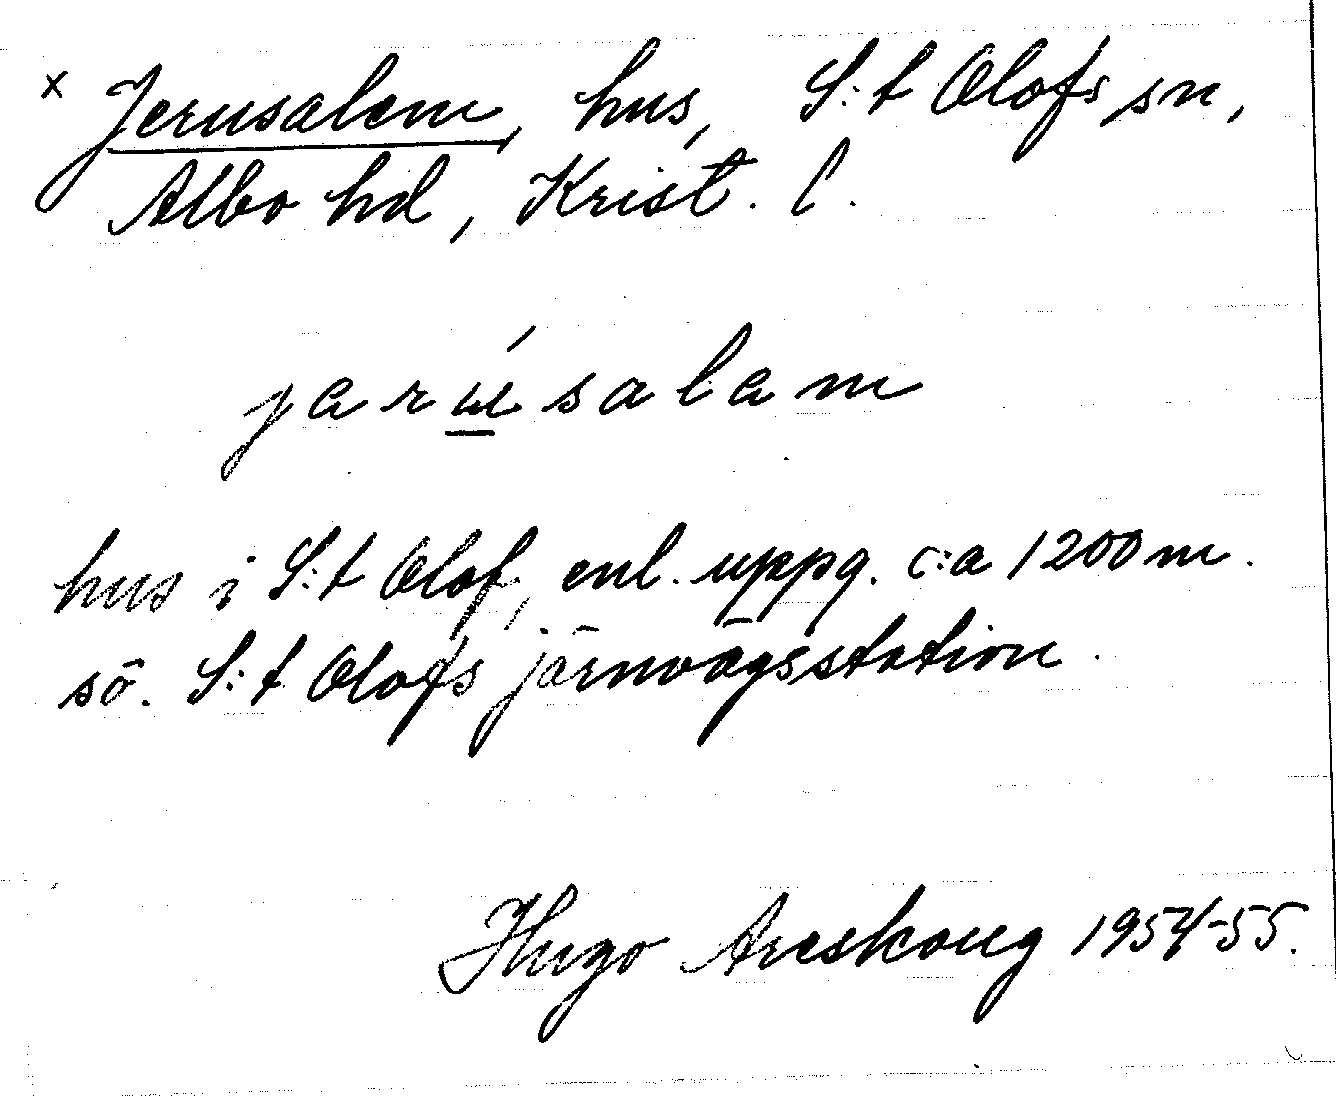 x Jerusalem, hus, S:t Olofs sn,
Albo hd, Krist. l.
jarúsalam
hus i S:t Olof, enl. uppg. c:a 1200 m.
sö. S:t Olofs järnvägsstation.
Hugo Areskoug 1954-55.